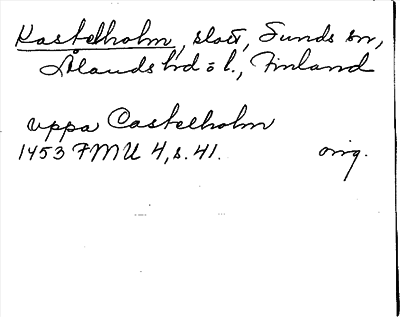 Kastelholm, slott, Sunds sn,
Ålands hd o l., Finland
uppa Castelholm
1453 FMU 4, s. 41. orig.